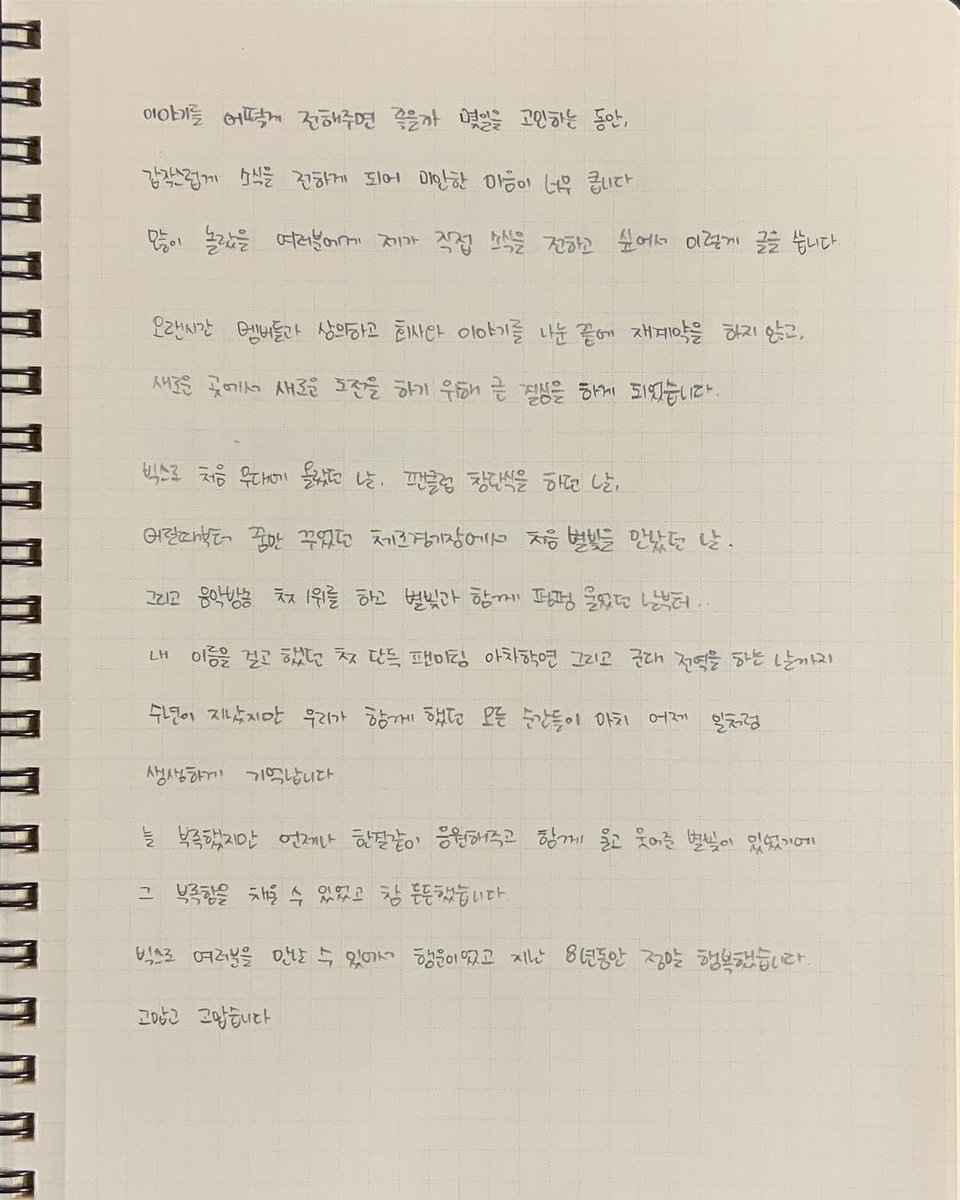 이야기를 어떻게 전해주면 좋을까 몇일을 고민하는 동안,
갑작스럽게 소식을 전하게 되어 미안한 마음이 너무 큽니다
많이 놀랐을 여러분에게 제가 직접 소식을 전하고 싶어서 이렇게 글을 씁니다.
오랜시간 멤버들과 상의하고 회사와 이야기를 나눈 끝에 재계약을 하지 않고,
새로운 곳에서 새로운 도전을 하기 위해 큰 결심을 하게 되었습니다.
빅스로 처음 무대에 올랐던 날. 팬클럽 창단식을 하던 날,
어릴때부터 꿈만 꾸었던 체조경기장에서 처음 별빛을 만났던 날.
그리고 음악방송 첫 1위를 하고 별빛과 함께 펑펑 울었던 날부터..
내 이름을 걸고 했던 첫 단독 팬미팅 아차학연 그리고 군대 전역을 하는 날까지
수년이 지났지만 우리가 함께 했던 모든 순간들이 마치 어제 일처럼
생생하게 기억납니다
늘 부족했지만 언제나 한결같이 응원해주고 함께 울고 웃어준 별빛이 있었기에
그 부족함을 채울 수 있었고 참 든든했습니다.
빅스로 여러분을 만날 수 있어서 행운이었고 지난 8년동안 정말 행복했습니다.
고맙고 고맙습니다